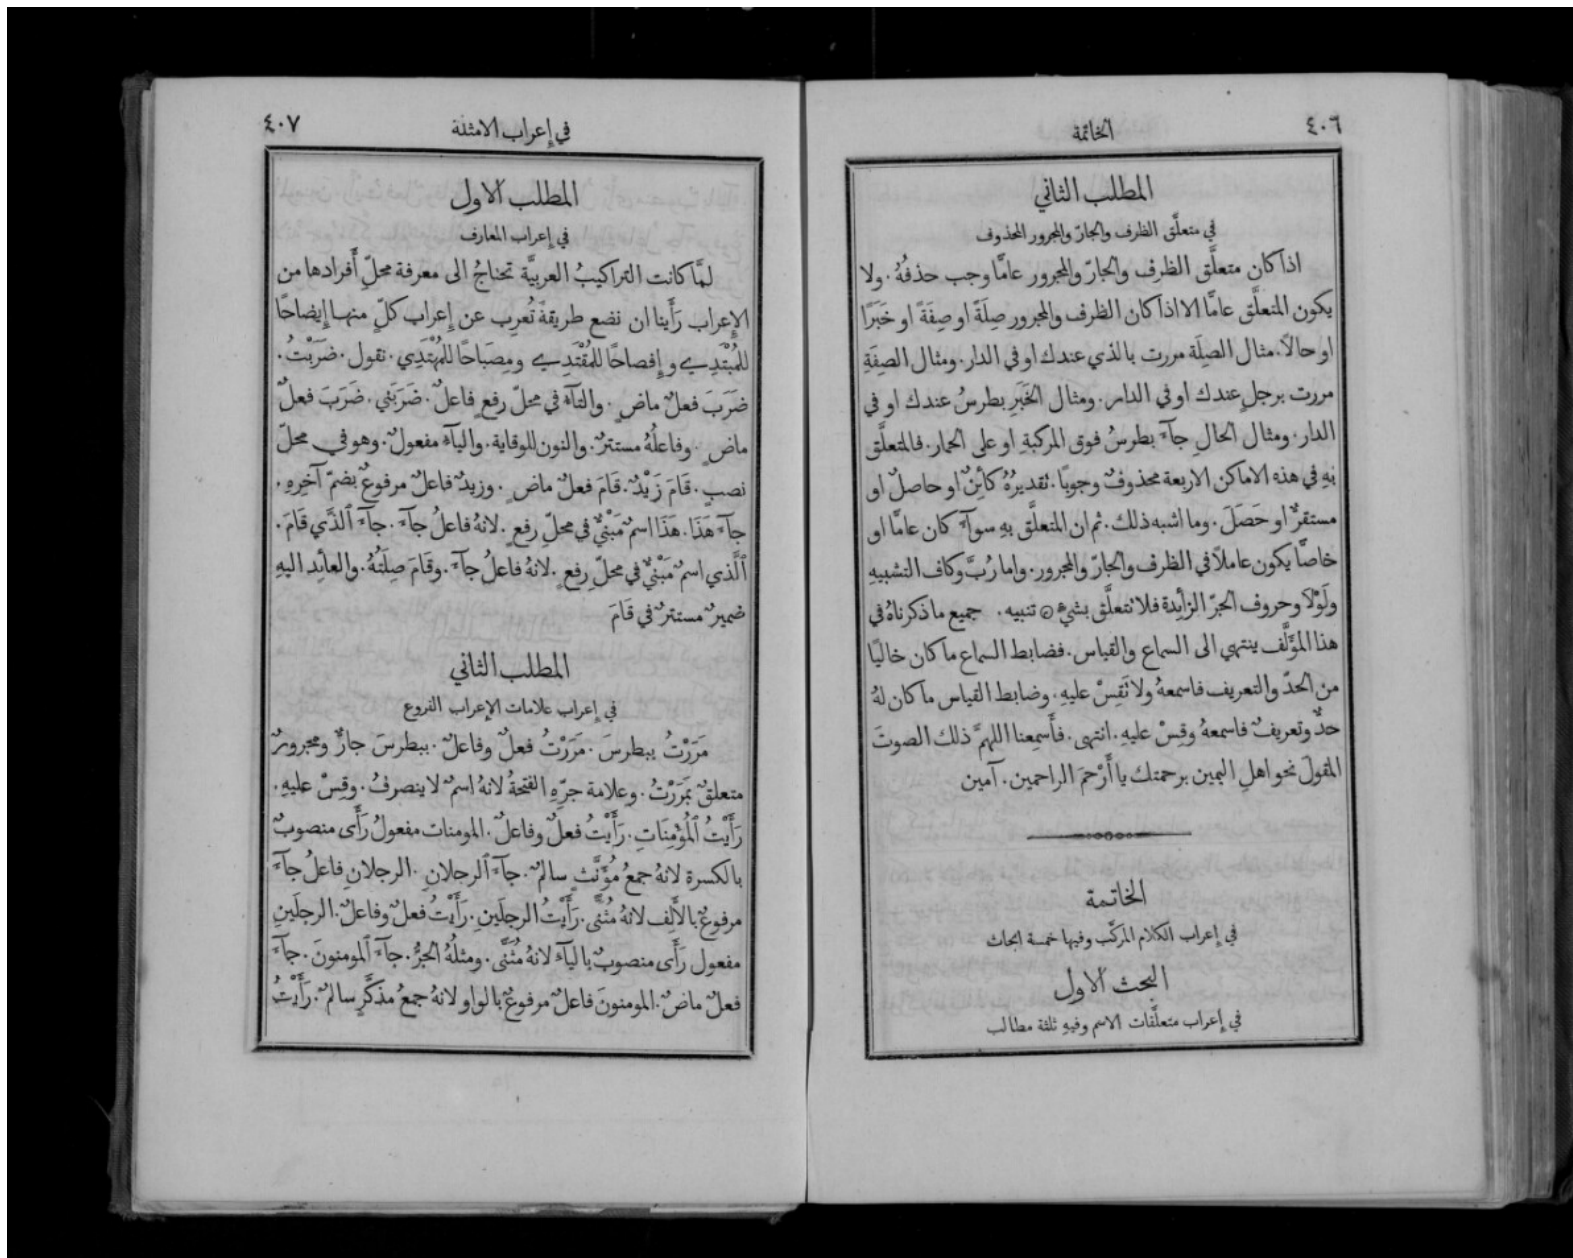 ٤٠٦
الخاتمة
المطلب الثاني
في متعلَّق الظرف والجارّ والمجرور المحذوف
اذا كان متعلَّق الظرفِ والجارّ والمجرور عامًّا وجب حذفُهُ. ولا
يكون المتعلَّق عامًّا الا اذا كان الظرف والمجرور صِلَةً او صِفَةً او خَبَرًا
او حالاً. مثال الصِلَة مررت بالذي عندك او في الدار. ومثال الصِفَةِ
مررت برجلٍ عندك او في الدار. ومثال الخَبَرِ بطرسُ عندك او في
الدار. ومثال الحالِ جآءَ بطرسُ فوق المركبةِ او على الحمار. فالمتعلَّق
بهِ في هذه الاماكن الاربعة محذوفٌ وجوبًا. تقديرُهُ كائِنٌ او حاصلٌ او
مستقرٌّ او حَصَلَ. وما اشبه ذلك. ثم ان المتعلَّق بهِ سوآءٌ كان عامًّا او
خاصًّا يكون عاملاً في الظرف والجارّ والمجرور. واما رُبَّ وكاف التشبيهِ
ولَوْلَا وحروف الجرّ الزائِدة فلا تتعلَّق بشيءٍ ۞ تنبيه. جميع ما ذكرناهُ في
هذا المؤَلَّف ينتهي الى السماع والقياس. فضابط السماع ما كان خاليًا
من الحدّ والتعريف فاسمعهُ ولا تَقِسْ عليهِ. وضابط القياس ما كان لهُ
حدٌّ وتعريفٌ فاسمعهُ وقِسْ عليهِ. انتهى. فأَسمِعنا اللهمَّ ذلك الصوتَ
المقولَ نحو اهلِ اليمين برحمتك يا أَرْحمَ الراحمين. آمين
الخاتمة
في إعراب الكلام المركَّب وفيها خمسة ابحاث
البحث الاول
في إعراب متعلَّقات الاسم وفيهِ ثلثة مطالب
٤٠٧
في إعراب الامثلة
المطلب الاول
في إعراب المعارف
لمَّا كانت التراكيبُ العربيَّة تحتاجُ الى معرفة محلّ أَفرادها من
الإعراب رَأَينا ان نضع طريقةً تُعرِب عن إعراب كلٍّ منها إيضاحًا
للمُبْتَدِي وإفصاحًا للمُقْتَدِي ومِصبَاحًا للمُهْتَدِي. نقول. ضَرَبْتُ.
ضَرَبَ فعلٌ ماضٍ. والتآءُ في محلّ رفعٍ فاعلٌ. ضَرَبَني. ضَرَبَ فعلٌ
ماضٍ. وفاعلُهُ مستترٌ. والنون للوقاية. واليآءُ مفعولٌ. وهو في محلّ
نصبٍ. قَامَ زَيْدٌ. قَامَ فعلٌ ماضٍ. وزيدٌ فاعلٌ مرفوعٌ بضمّ آخِرِهِ.
جآءَ هَذَا. هَذَا اسمٌ مَبْنيٌّ في محلّ رفعٍ. لانهُ فاعلُ جآءَ. جآءَ ٱلَّذَي قَامَ.
ٱلَّذي اسمٌ مَبْنيٌّ في محلّ رفعٍ. لانهُ فاعلُ جآءَ. وقَامَ صِلَتُهُ. والعائِد اليهِ
ضميرٌ مستترٌ في قَامَ
المطلب الثاني
في إعراب علامات الإعراب الفروع
مَرَرْتُ ببطرسَ. مَرَرْتُ فعلٌ وفاعلٌ. ببطرسَ جارٌّ ومجرورٌ
متعلقٌ بمَرَرْتُ. وعلامة جرِّهِ الفتحةُ لانهُ اسمٌ لا ينصرفُ. وقِسْ عليهِ.
رَأَيْتُ ٱلْمُؤْمِنَاتِ. رَأَيْتُ فعلٌ وفاعلٌ. المومنات مفعولُ رَأَى منصوبٌ
بالكسرة لانهُ جمعُ مُؤَنَّثٍ سالمٌ. جآءَ ٱلرجلانِ. الرجلانِ فاعلُ جآءَ
مرفوعٌ بالأَلِف لانهُ مُثَنًّى. رَأَيْتُ الرجلَينِ. رَأَيْتُ فعلٌ وفاعلٌ. الرجلَينِ
مفعول رَأَى منصوبٌ باليآءِ لانهُ مُثَنًّى. ومثلُهُ الجرُّ. جآءَ ٱلمومنونَ. جآءَ
فعلٌ ماضٍ. المومنونَ فاعلٌ مرفوعٌ بالواو لانهُ جمعُ مذكَّرٍ سالمٌ. رَأَيْتُ